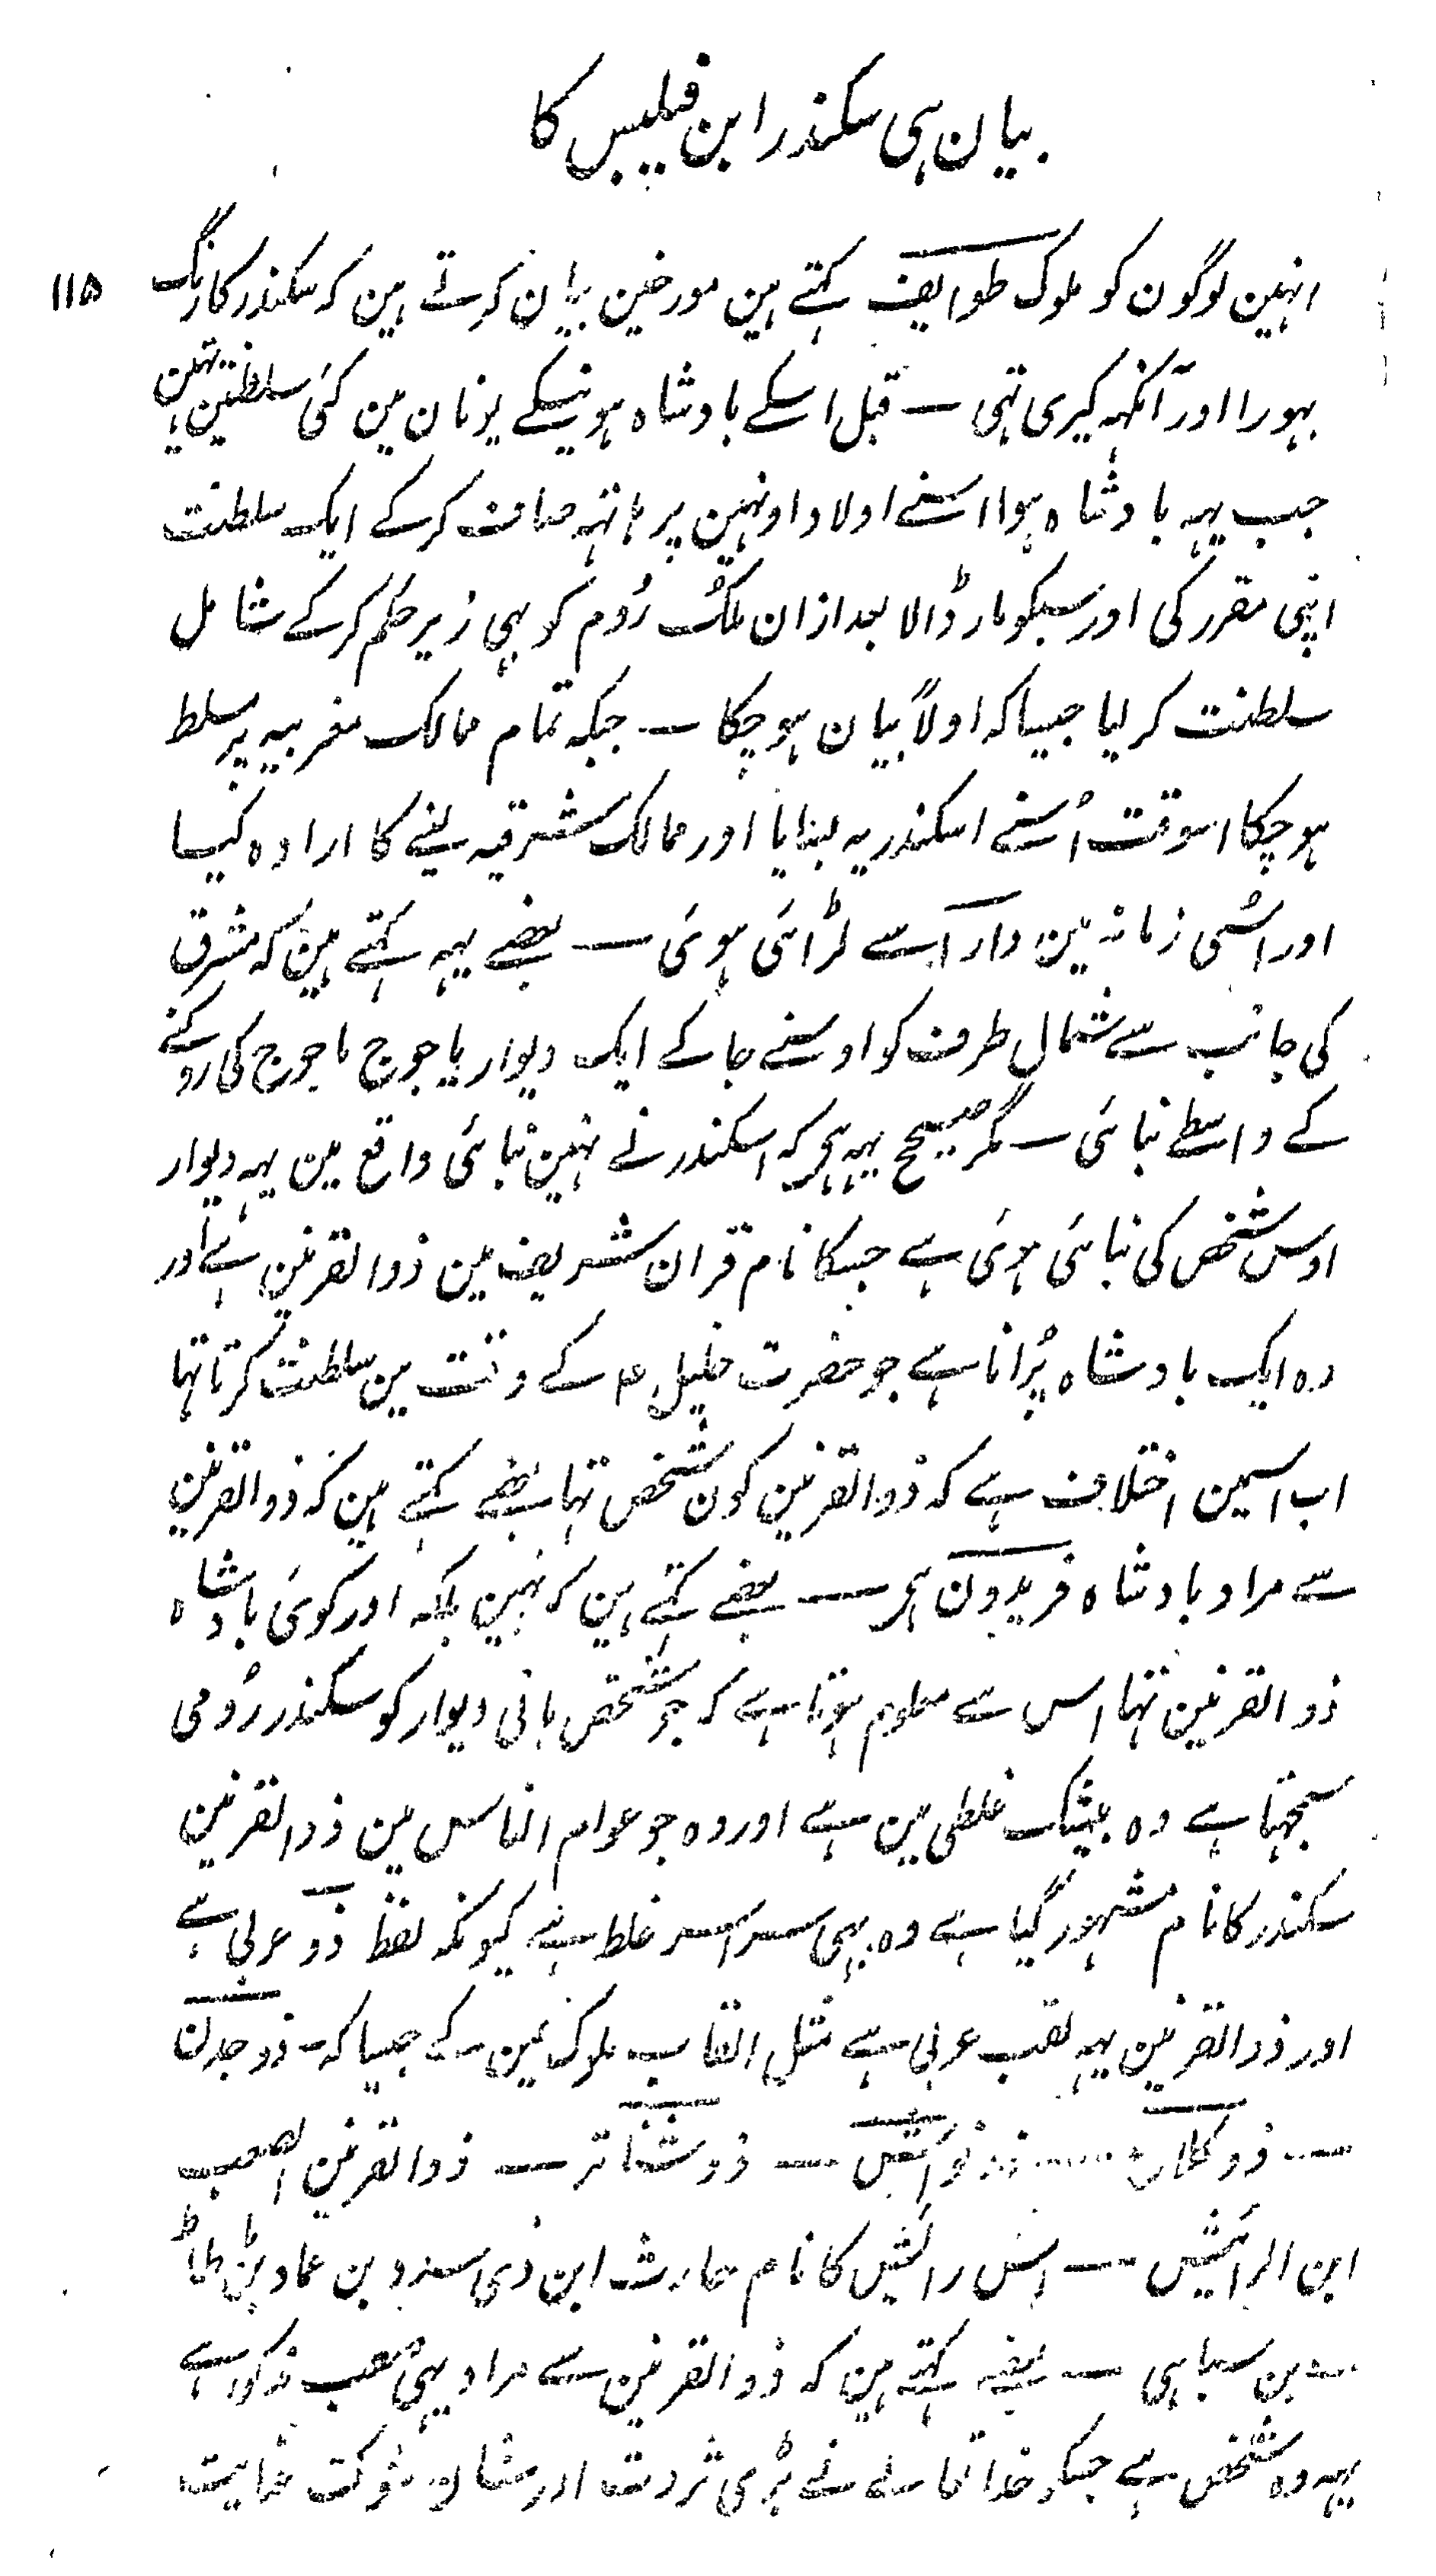 بیان ہی سکندر ابن فیلپس کا
۱۱۵
انہین لوگون کو ملوک طوایف کہتے ہین مورخین بیان کرتے ہین کہ سکندر کا رنگ
بہورا اور آنکہہ کیری تہی — قبل اسکے بادشاہ ہونیکے یونان مین کئی سلطنتین تہین
جب یہہ بادشاہ ہوا اسنے اولاد اونہین پر ہاتہہ صاف کرکے ایک سلطنت
اپنی مقرر کی اور سبکو مار ڈالا بعد ازان ملک رُوم کو بہی زیر حکم کرکے شامل
سلطنت کر لیا جیسا کہ اولاً بیان ہو چکا — جبکہ تمام ممالک مغربیہ پر سلط
ہو چکا اسوقت اُسنے اسکندریہ بنایا اور ممالک شرقیہ لینے کا ارادہ کیا
اور اسی زمانہ مین دارا سے لڑائی ہوئی — بعضے یہہ کہتے ہین کہ مشرق
کی جانب سے شمال طرف کو اوسنے جا کے ایک دیوار یاجوج ماجوج کی روکنے
کے واسطے بنائی — مگر صحیح یہہ ہی کہ اسکندر نے نہین بنائی واقع مین یہہ دیوار
اوس شخص کی بنائی ہوئی ہے جسکا نام قران شریف مین ذوالقرنین ہے اور
وہ ایک بادشاہ پُرانا ہے جو حضرت خلیل ع کے وقت مین سلطنت کرتا تہا
اب اسمین اختلاف ہے کہ ذوالقرنین کون شخص تہا بعضے کہتے ہین کہ ذوالقرنین
سے مراد بادشاہ فریدون ہی — بعضے کہتے ہین کہ نہین بلکہ اور کوئی بادشاہ
ذوالقرنین تہا اس سے معلوم ہوتا ہے کہ جو شخص بانی دیوار کو سکندر رُومی
سمجہتا ہے وہ بیشک غلطی مین ہے اور وہ جو عوام الناس مین ذوالقرنین
سکندر کا نام مشہور گیا ہے وہ بہی سراسر غلط ہے کیونکہ لفظ ذو عربی ہے
اور ذوالقرنین یہہ لقب عربی ہے مثل القاب ملوک یمن کے جیسا کہ — ذو جدن
— ذو کلاع — ذو نواس — ذو شناتر — ذوالقرنین الصعب
ابن الرائش — اس رائش کا نام حارث ابن ذی سدد بن عاد بن الماط
بن سبا ہی — بعضے کہتے ہین کہ ذوالقرنین سے مراد یہی صعب مذکور ہے
یہہ وہ شخص ہے جسکو خدا تعالے نے بڑی ثروت اور شان شوکت عنایت